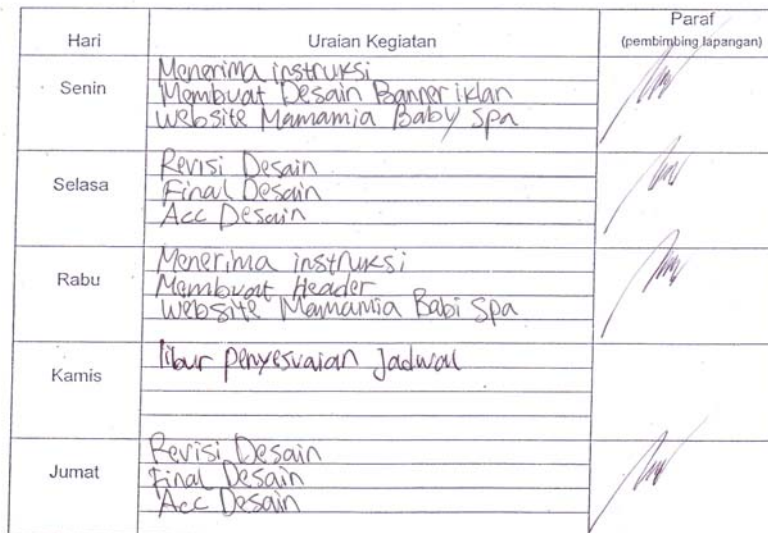 Hari Uraian Kegiatan Paraf
(pembimbing lapangan)
Senin
Menerima instruksi
Membuat Desain Banner iklan
website Mamamia Baby Spa
Selasa
Revisi Desain
Final Desain
Acc Desain
Rabu
Menerima instruksi
Membuat Header
website Mamamia Babi Spa
Kamis
libur penyesuaian Jadwal
Jumat
Revisi Desain
Final Desain
Acc Desain